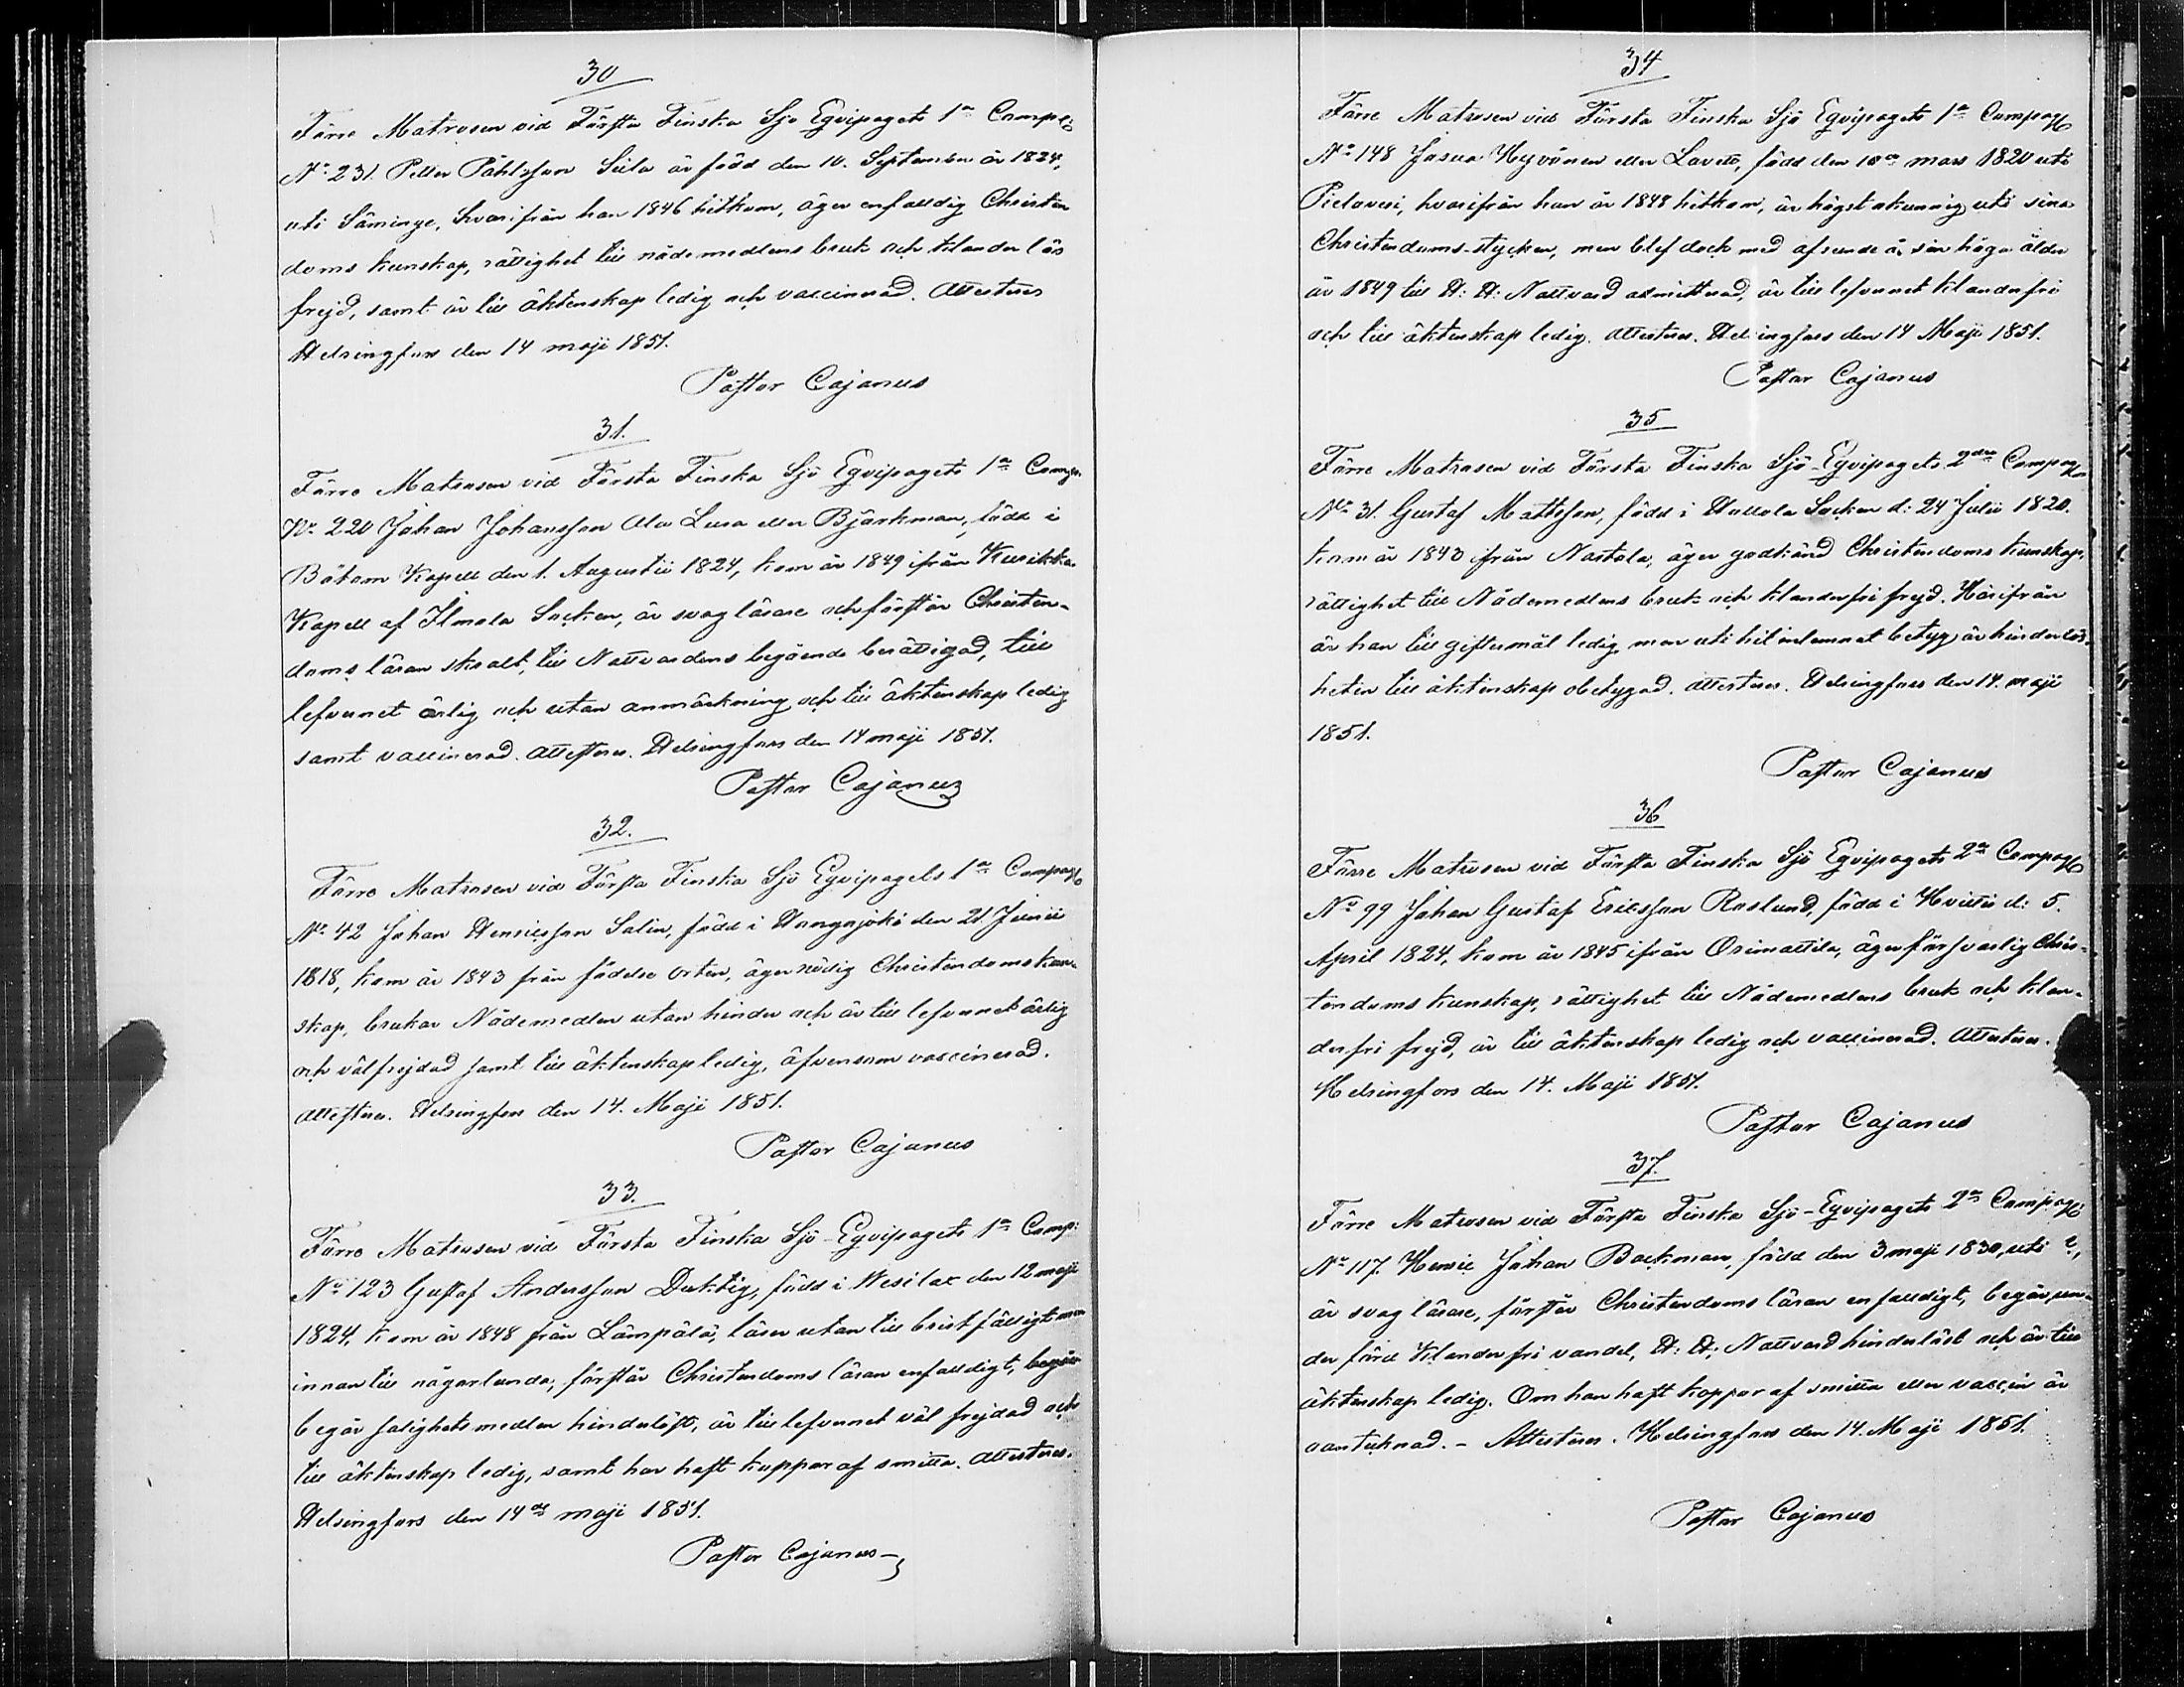 30
Förre Matrosen vid Första Finska Sjö Eqvipagets 1a Comp:
No 231. Petter Påhlsson Siila är född den 10. September år 1824,
uti Säminge, hvarifrån han 1846 hitkom, äger enfalldig Christen
doms kunskap, rättighet till nådemedlens bruk och klander lös
frejd, samt är till äktenskap ledig och vaccinerad. Attesteres
Helsingfors den 14 maji 1851.
Pastor Cajanus
31.
Förre Matrosen vid Första Finska Sjö Eqvipagets 1a Comp.
No 220 Johan Johansson Ala Lura eller Björkman, född i
Bötom Kapell den 1. Augusti 1824, kom år 1849 ifrån Kurikka
Kapell af Ilmola Socken, är svag läsare och förstår Christen-
doms läran skralt, till Nattvardens begående berättigad, till
lefvernet ärlig och utan anmärkning och till äktenskap ledig
samt vaccinerad. Attesteres. Helsingfors den 14 maji 1851.
Pastor Cajanus
32.
Förre Matrosen vid Första Finska Sjö Eqvipagets 1a Compag
No 42 Johan Henricsson Salin, född i Haapajoki den 21 Junii
1818, kom år 1843 från födelse orten, äger nödig Christendoms kun-
skap, brukar Nådemedlen utan hinder och är till lefvernet ärlig
och välfrejdad samt till äktenskap ledig, äfvensom vaccinerad.
Attesteres. Helsingfors den 14. Maji 1851.
Pastor Cajanus
33.
Förre Matrosen vid Första Finska Sjö-Eqvipagets 1a Comp:
No 123 Gustaf Andersson Duktig, född i Wesilax den 12 maji
1824, kom år 1848 från Lämpälä, läser utan till bristfälligt men
innan till någorlunda, förstår Christendoms läran enfalldigt, begår
begår salighets medlen hinderlöst, är till lefvernet väl frejdad och
till äktenskap ledig, samt har haft koppor af smitta. Attesteres.
Helsingfors den 14de maji 1851.
Pastor Cajanus
34
Förre Matrosen vid Första Finska Sjö Eqvipagets 1a Compag
No 148 Josua Hyvönen eller Lavett, född den 10de mars 1820 uti
Pielavesi, hvarifrån han år 1848 hitkom, är högst okunnig uti sina
Christendoms-stycken, men blef dock med afseende å sin höga ålder
år 1849 till H: H: Nattvard admitterad, är till lefvernet klanderfri
och till äktenskap ledig. Attesteres. Helsingfors den 14 Maji 1851.
Pastor Cajanus
35
Förre Matrosen vid Första Finska Sjö-Eqvipagets 2dra Compag
No 31. Gustaf Mattsson, född i Hollola Socken d: 24 Julii 1820.
kom år 1843 från Nastola, äger godkänd Christendoms kunskap,
rättighet till Nådemedlens bruk och klanderfri frejd. Härifrån
är han till giftermål ledig men uti hit inlemnat betyg är hinderlös-
heten till äktenskap obetygad. Attesteres. Helsingfors den 14. maji
1851.
Pastor Cajanus
36
Förre Matrosen vid Första Finska Sjö Eqvipagets 2a Compag
No 99 Johan Gustaf Ericsson Roslund, född i Hvittis d: 5.
April 1824, kom år 1845 ifrån Orimattila, äger försvarlig Chris-
tendoms kunskap, rättighet till Nådemedlens bruk och klan-
derfri frejd, är till äktenskap ledig och vaccinerad. Attesteres.
Helsingfors den 14. Maji 1851.
Pastor Cajanus
37.
Förre Matrosen vid Första Finska Sjö-Eqvipagets 2a Compag
No 117. Henric Johan Backman, född den 3 maji 1830, uti ?,
är svag läsare, förstår Christendoms läran enfalldigt, begår, un-
der förd klander fri vandel, H: H: Nattvard hinderlöst och är till
äktenskap ledig. Om han haft koppor af smitta eller vaccin är
oantecknad. - Attesteres. Helsingfors den 14. Maji 1851.
Pastor Cajanus